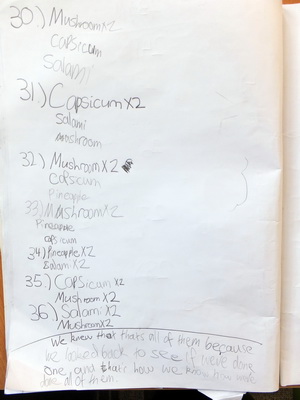 30.) Mushroom x2
capsicum
Salami
31) Capsicum x2
Salami
mushroom
32.) Mushroom x2
capscum
Pineapple
33) Mushroom x2
Pineapple
capsicum
34) Pineapple x2
Salami x2
35) Capsicum x2
Mushroom x2
36) Salami x2
Mushroom x2
We knew that that's all of them because
we looked back to see if we've done
one, and that's how we have
done all of them.